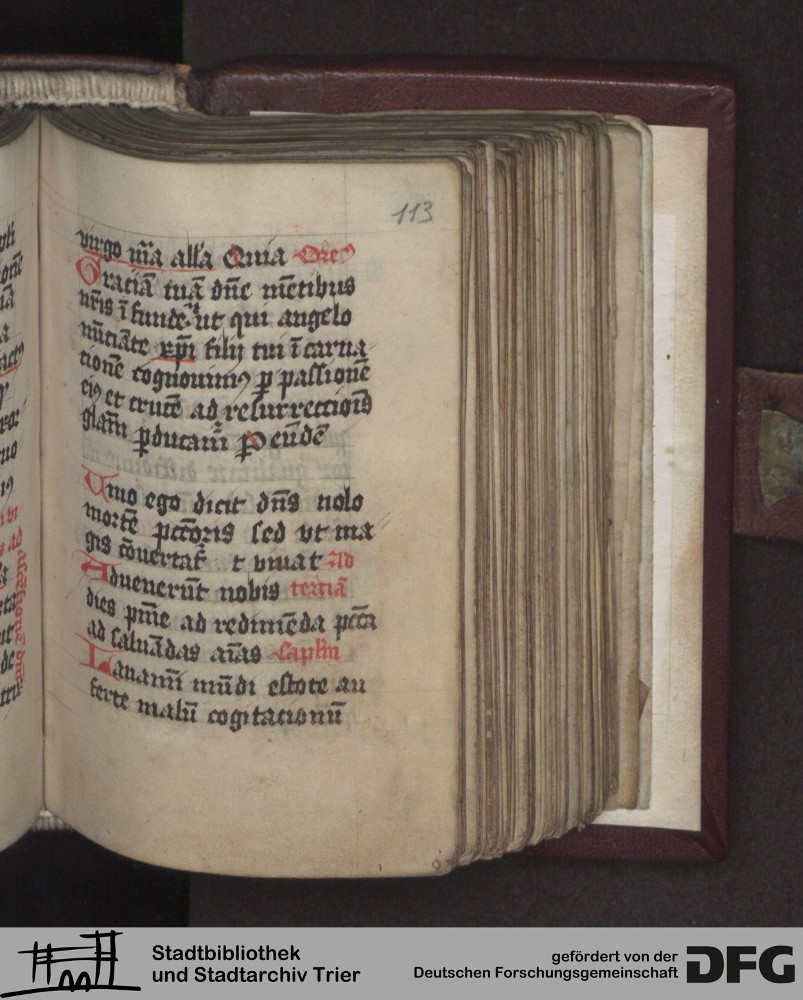 113
virgo mr̄a all'a Quia Orē
Gratiā tuā dn̄e mētibus
nr̄is īfunde ut qui angelo
nūtiāte xp̄i filij tui īcarna
tionē cognouimꝯ ꝑ passionē
eiꝯ et crucē ad resurrectiōis
glam̄ ꝑducam̄ ꝑ eūdē
Uiuo ego dicit dn̄s nolo
mortē pctōris sed vt ma
gis cōuertat᷑ t viuat Ad
Aduenerūt nobis terciā
dies pnīe ad redimēda pctā
ad saluādas aīas Caplm̄
Lauamī mūdi estote au
ferte malū cogitacionū
Stadtbibliothek
und Stadtarchiv Trier
gefördert von der
Deutschen Forschungsgemeinschaft
DFG